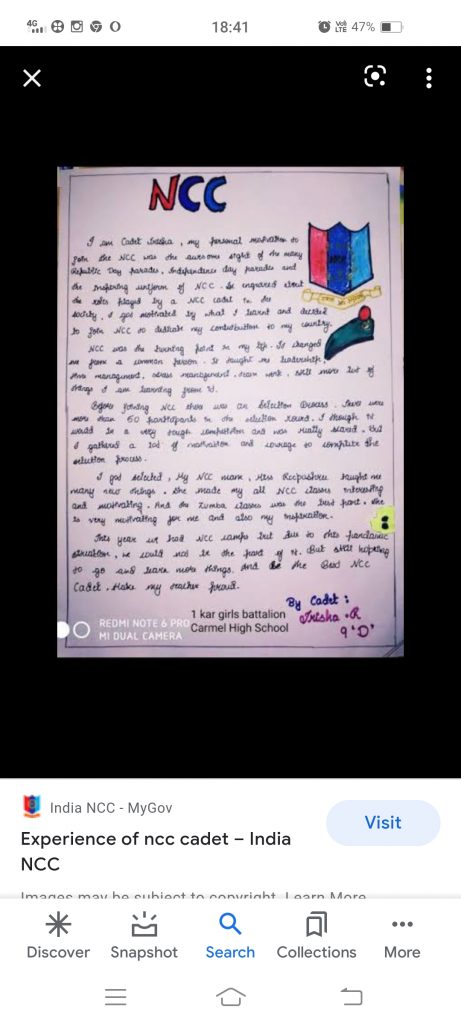 4G
18:41
VoD
LTE
47%
NCC
I am Cadet Trisha, my personal motivation to
join the NCC was the awesome sight of the many
Republic Day parades, Independence day parades and
the inspiring uniform of NCC. Be enquired about
the roles played by a NCC cadet in the
society, I got motivated by what I learnt and decided
to join NCC to dedicate my contribution to my country.
NCC was the turning point in my life. It changed
me from a common person. It taught me leadership,
time management, stress management, team work, still more lot of
things I am learning from it.
Before joining NCC there was an Selection Process. There were
more than 50 participants in the selection round. I though it
would be a very tough competition and was really scared. But
I gathered a lot of motivation and courage to complete the
selection process.
I got selected, My NCC mam, Miss Roopashree taught me
many new things. She made my all NCC classes interesting
and motivating. And the Zumba classes was the best part. She
is very motivating for me and also my inspiration.
This year we had NCC camps but due to this pandamic
situation, we could not be the part of it. But still hoping
to go and learn more things. And Be the Best NCC
Cadet. Make my teacher proud.
By Cadet :
Trisha .R
9 'D'
1 kar girls battalion
Carmel High School
REDMI NOTE 6 PRO
MI DUAL CAMERA
India NCC - MyGov
Visit
Experience of ncc cadet – India
NCC
Images may be subject to copyright. Learn More
Discover
Snapshot
Search
Collections
More